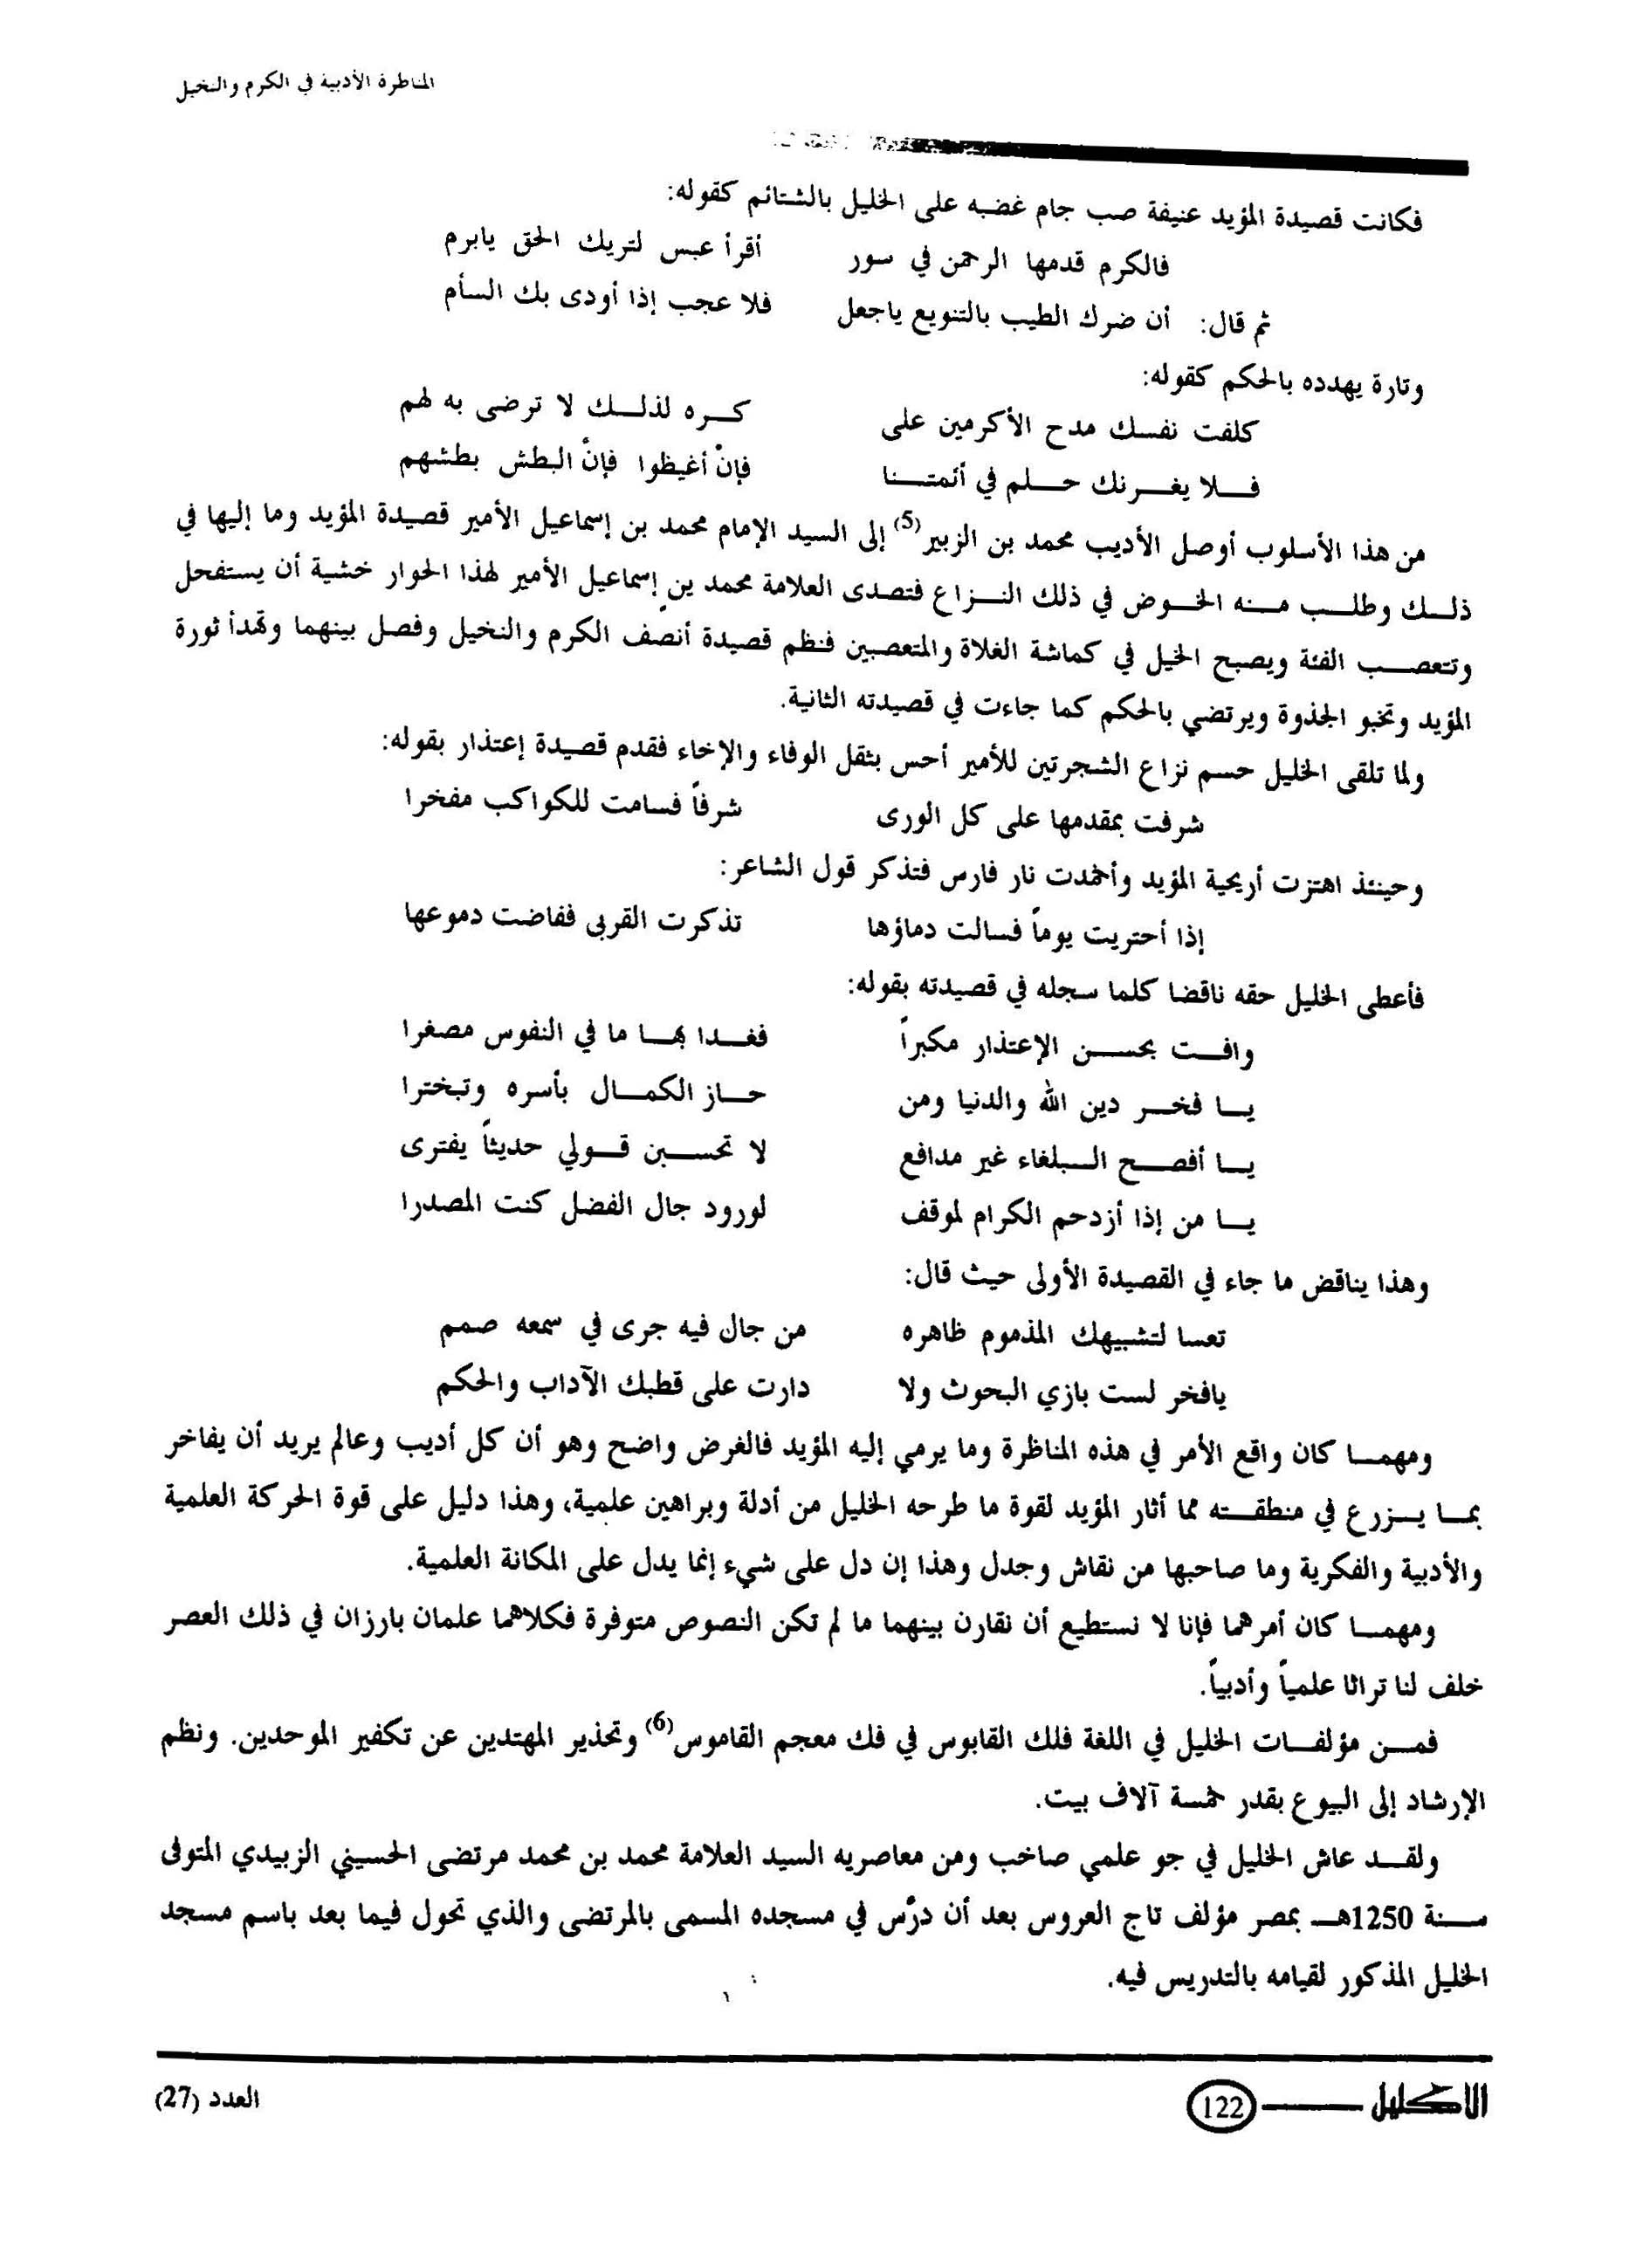 المناظرة الأدبية في الكرم والنخيل
فكانت قصيدة المؤيد عنيفة صب جام غضبه على الخليل بالشتائم كقوله:
فالكرم قدمها الرحمن في سور أقرأ عبس لتريك الحق يابرم
ثم قال: أن ضرك الطيب بالتنويع ياجعل فلا عجب إذا أودى بك السأم
وتارة يهدده بالحكم كقوله:
كلفت نفسك مدح الأكرمين على كره لذلك لا ترضى به لهم
فلا يغرنك حلم في أئمتنا فإنْ أغيظوا فإنْ البطش بطشهم
من هذا الأسلوب أوصل الأديب محمد بن الزبير(5) إلى السيد الإمام محمد بن إسماعيل الأمير قصيدة المؤيد وما إليها في
ذلك وطلب منه الخوض في ذلك النزاع فتصدى العلامة محمد بن إسماعيل الأمير لهذا الحوار خشية أن يستفحل
وتتعصب الفئة ويصبح الخيل في كماشة الغلاة والمتعصبين فنظم قصيدة أنصف الكرم والنخيل وفصل بينهما وتهدأ ثورة
المؤيد وتخبو الجذوة ويرتضي بالحكم كما جاءت في قصيدته الثانية.
ولما تلقى الخليل حسم نزاع الشجرتين للأمير أحس بثقل الوفاء والإخاء فقدم قصيدة إعتذار بقوله:
شرفت بمقدمها على كل الورى شرفاً فسامت للكواكب مفخرا
وحينئذ اهتزت أريحية المؤيد وأخمدت نار فارس فتذكر قول الشاعر:
إذا أحتربت يوماً فسالت دماؤها تذكرت القربى ففاضت دموعها
فأعطى الخليل حقه ناقضا كلما سجله في قصيدته بقوله:
وافت بحسن الإعتذار مكبراً فغدا بها ما في النفوس مصغرا
يا فخر دين الله والدنيا ومن حاز الكمال بأسره وتبخترا
يا أفصح البلغاء غير مدافع لا تحسبن قولي حديثاً يفترى
يا من إذا أزدحم الكرام لموقف لورود جال الفضل كنت المصدرا
وهذا يناقض ما جاء في القصيدة الأولى حيث قال:
تعسا لتشبيهك المذموم ظاهره من جال فيه جرى في سمعه صمم
يافخر لست بازي البحوث ولا دارت على قطبك الآداب والحكم
ومهما كان واقع الأمر في هذه المناظرة وما يرمي إليه المؤيد فالغرض واضح وهو أن كل أديب وعالم يريد أن يفاخر
بما يزرع في منطقته مما أثار المؤيد لقوة ما طرحه الخليل من أدلة وبراهين علمية، وهذا دليل على قوة الحركة العلمية
والأدبية والفكرية وما صاحبها من نقاش وجدل وهذا إن دل على شيء إنما يدل على المكانة العلمية.
ومهما كان أمرهما فإنا لا نستطيع أن نقارن بينهما ما لم تكن النصوص متوفرة فكلاهما علمان بارزان في ذلك العصر
خلف لنا تراثا علمياً وأدبياً.
فمن مؤلفات الخليل في اللغة فلك القابوس في فك معجم القاموس(6) وتحذير المهتدين عن تكفير الموحدين. ونظم
الإرشاد إلى البيوع بقدر خمسة آلاف بيت.
ولقد عاش الخليل في جو علمي صاخب ومن معاصريه السيد العلامة محمد بن محمد مرتضى الحسيني الزبيدي المتوفى
سنة 1250هـ بمصر مؤلف تاج العروس بعد أن درّس في مسجده المسمى بالمرتضى والذي تحول فيما بعد باسم مسجد
الخليل المذكور لقيامه بالتدريس فيه.
الاكليل 122 العدد (27)